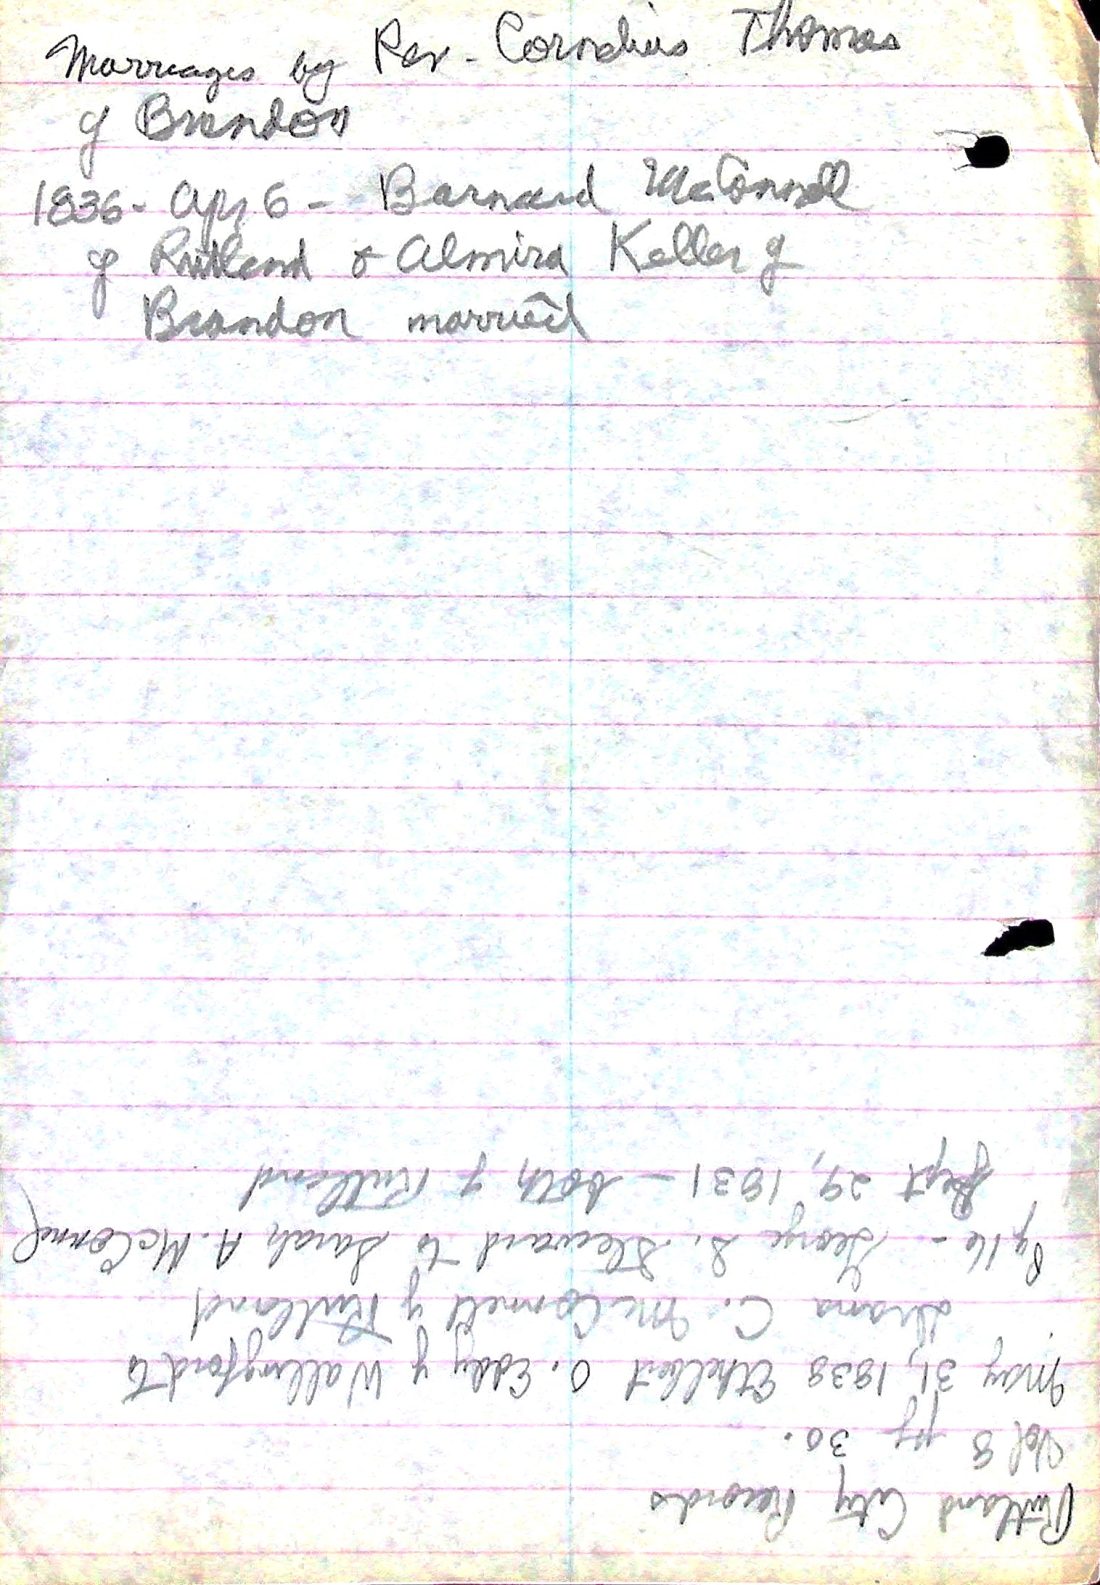 Marriages by Rev. Cornelius Thomas
of Brandon
1836- Apr 6 - Barnard McConnell
of Rutland & Almira Keller of
Brandon married
Rutland City Records
Vol 8 pg 30.
May 31, 1838 Ethelbert O. Eddy of Wallingford to
C. McConnell of Rutland
pg 16 - George S. Steward to Sarah A. McConnel
Sept 29, 1831 - both of Rutland